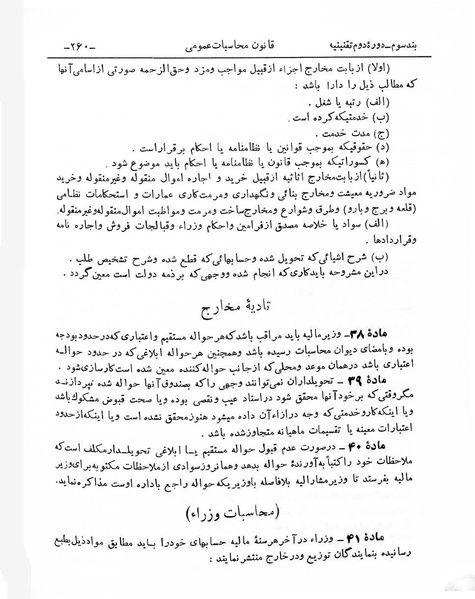 بند سوم ـ دورهٔ دوم تقنینیه قانون محاسبات عمومی -۲۶۰-
(اولا) از بابت مخارج اجزاء از قبیل مواجب و مزد و حق الزحمه صورتی از اسامی آنها
که مطالب ذیل را دارا باشد :
(الف) رتبه یا شغل .
(ب) خدمتیکه کرده است .
(ج) مدت خدمت .
(د) حقوقیکه بموجب قوانین یا نظامنامه یا احکام برقرار است .
(ه) کسوراتیکه بموجب قانون یا نظامنامه یا احکام باید موضوع شود .
(ثانیاً) از بابت مخارج اثاثیه از قبیل خرید و اجاره اموال منقوله و غیر منقوله و خرید
مواد ضروریه معیشت و مخارج بنائی و نگهداری و مرمت کاری عمارات و استحکامات نظامی
(قلعه و برج و بارو) و طرق و شوارع و مخارج ساخت و مرمت و مواظبت اموال منقوله و غیر منقوله.
(الف) سواد یا خلاصه مصدق از فرامین و احکام وزراء و قبالجات فروش و اجاره نامه
و قراردادها .
(ب) شرح اشیائی که تحویل شده و حسابهائی که قطع شده و شرح تشخیص طلب .
در این مشروحه باید کاری که انجام شده و وجهی که بر ذمه دولت است معین گردد .
تادیهٔ مخارج
مادهٔ ۳۸ـ وزیر مالیه باید مراقب باشد که هر حواله مستقیم و اعتباری که در حدود بودجه
بوده و بامضای دیوان محاسبات رسیده باشد و همچنین هر حواله ابلاغی که در حدود حواله
اعتباری باشد در همان موعد و محلی که از جانب حواله کننده معین شده است کارسازی شود .
مادهٔ ۳۹ ـ تحویلداران نمی توانند وجهی را که بصندوق آنها حواله شده نپردازند
مگر وقتی که بر خود آنها محقق شود در اسناد عیب و نقصی بوده و یا صحت قبوض مشکوک باشد
و یا اینکه کار و خدمتی که وجه در ازاء آن داده میشود هنوز محقق نشده است و یا اینکه از حدود
اعتبارات معینه یا تقسیمات ماهیانه متجاوز شده باشد .
مادهٔ ۴۰ ـ در صورت عدم قبول حواله مستقیم یا ابلاغی تحویلدار مکلف است که
ملاحظات خود را کتباً به آورندهٔ حواله بدهد و همانروز سوادی از ملاحظات مکتوبه برای وزیر
مالیه بفرستد تا وزیر مشارالیه بلافاصله با وزیریکه حواله راجع باداره اوست مذاکره نماید.
(محاسبات وزراء)
مادهٔ ۴۱ ـ وزراء در آخر هر سنهٔ مالیه حسابهای خود را باید مطابق مواد ذیل بطبع
رسانیده بنمایندگان توزیع و در خارج منتشر نمایند :